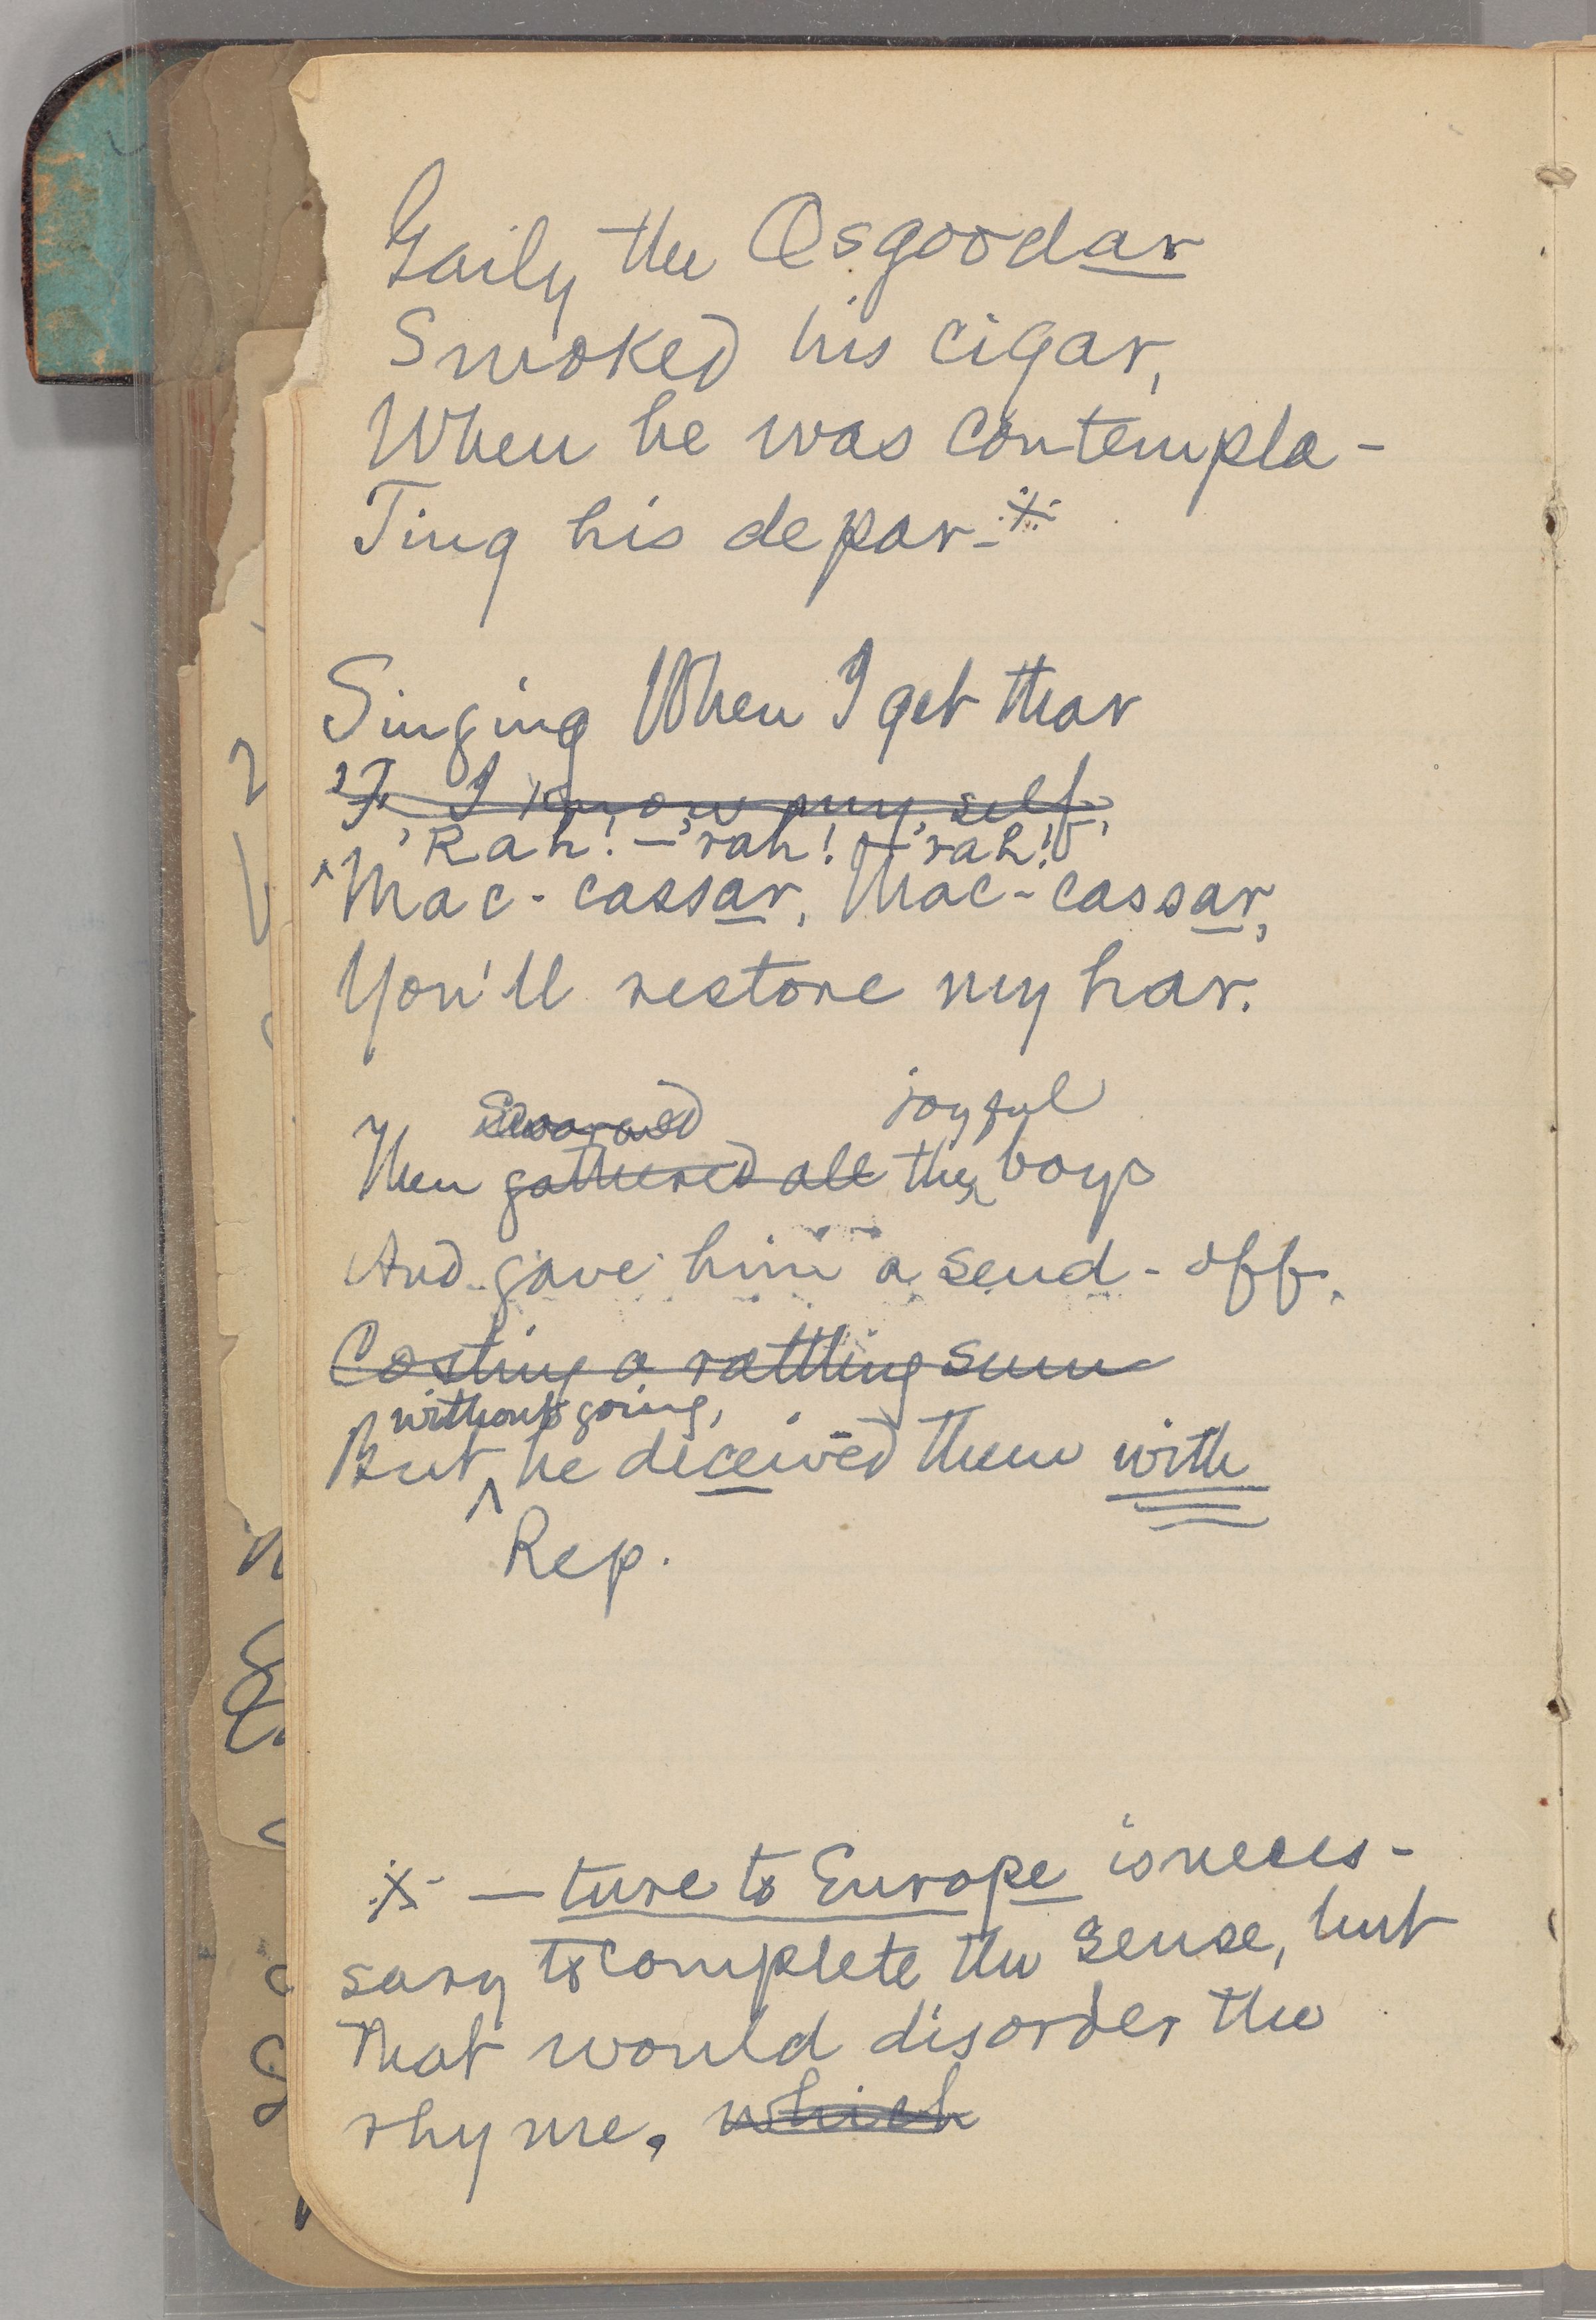 Gaily the Osgoodar
Smoked his cigar,
When he was contempla-
Ting his depar-※
Singing When I get thar
I know myself,
'Rah! — 'rah! — 'rah!
Mac-cassar, Mac-cassar,
You'll restore my har.
Swarmed joyful
Then gathered all the boys
And gave him a send-off,
Costing a rattling sum
without going,
But he deceived them with
Rep.
※ — ture to Europe is neces-
sary to complete the sense, but
that would disorder the
rhyme. which